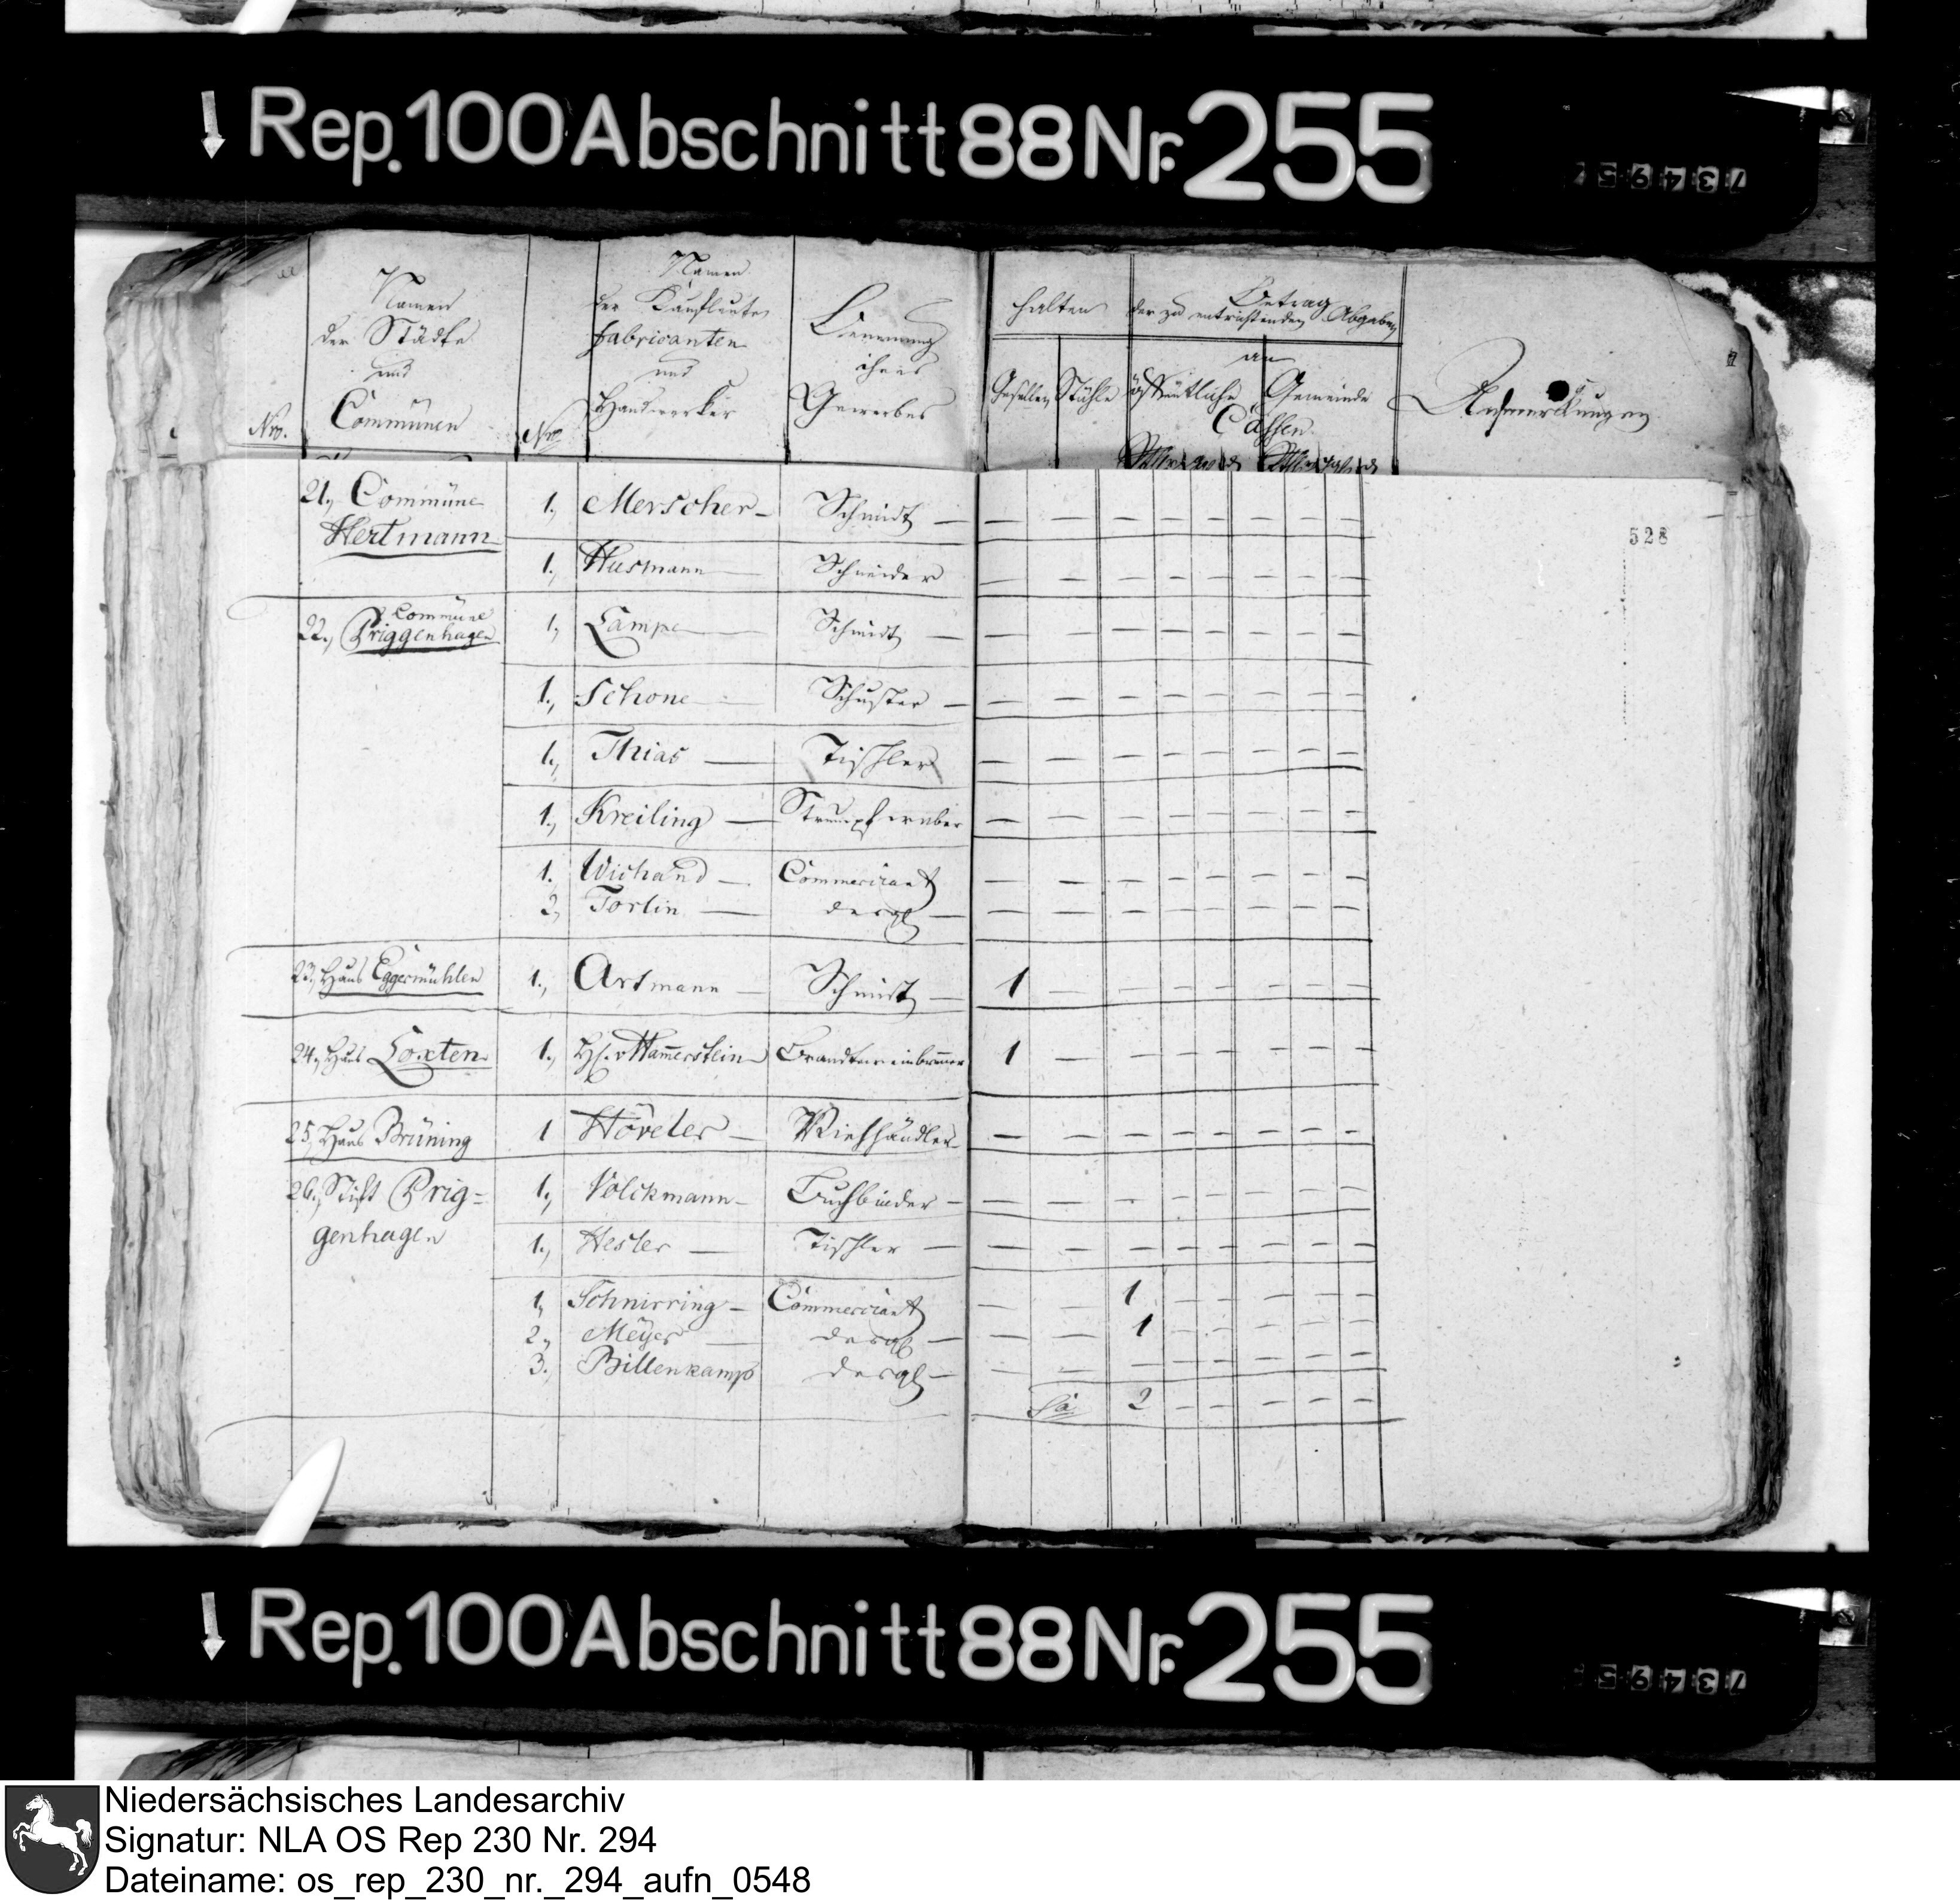 Rep. 100 Abschnitt 88 Nr. 255
734957
Nro.
Namen
der Städte
und
Communen
Nro
Namen
der Kaufleute
Fabricanten
und
Handwerker
Benennung
ihres
Gewerbes
halten
Gesellen
Stühle
Betrag
der zu entrichtenden Abgaben
an
öffentliche
Gemeinde
Cassen
Anmerkungen
528
21., Commüne
Hertmann
1., Merscher - Schmidt — — — — — — — — —
1., Husmann — Schneider — — — — — — — —
22., Commüne
Priggenhagen
1, Lampe — Schmidt — — — — — — — — —
1., Schone — Schuster — — — — — — — — —
1., Thias — Tischler — — — — — — — —
1., Kreiling — Strumpfweber — — — — — — — —
1. Wichand — Commerciant — — — — — — — —
2, Torlin — desgl — — — — — — — — —
23., Haus Eggermühlen 1., Artmann — Schmidt — 1 — — — — — — —
24., Haus Loxten 1., H. v. Hammerstein Brandtweinbrenner 1 — — — — — — —
25, Haus Brüning 1 Höveler — Viehhändler — — — — — — — —
26., Stift Prig=
genhagen
1., Volckmann — Buchbinder — — — — — — — — —
1., Hesler — Tischler — — — — — — — — —
1, Schnirring — Commerciant — — 1 — — — — —
2., Meÿer — desgl — — — 1 — — — — —
3., Billenkamp desgl — — — — — — — — —
Sa 2 — — — — —
Rep. 100 Abschnitt 88 Nr. 255
734957
Niedersächsisches Landesarchiv
Signatur: NLA OS Rep 230 Nr. 294
Dateiname: os_rep_230_nr._294_aufn_0548